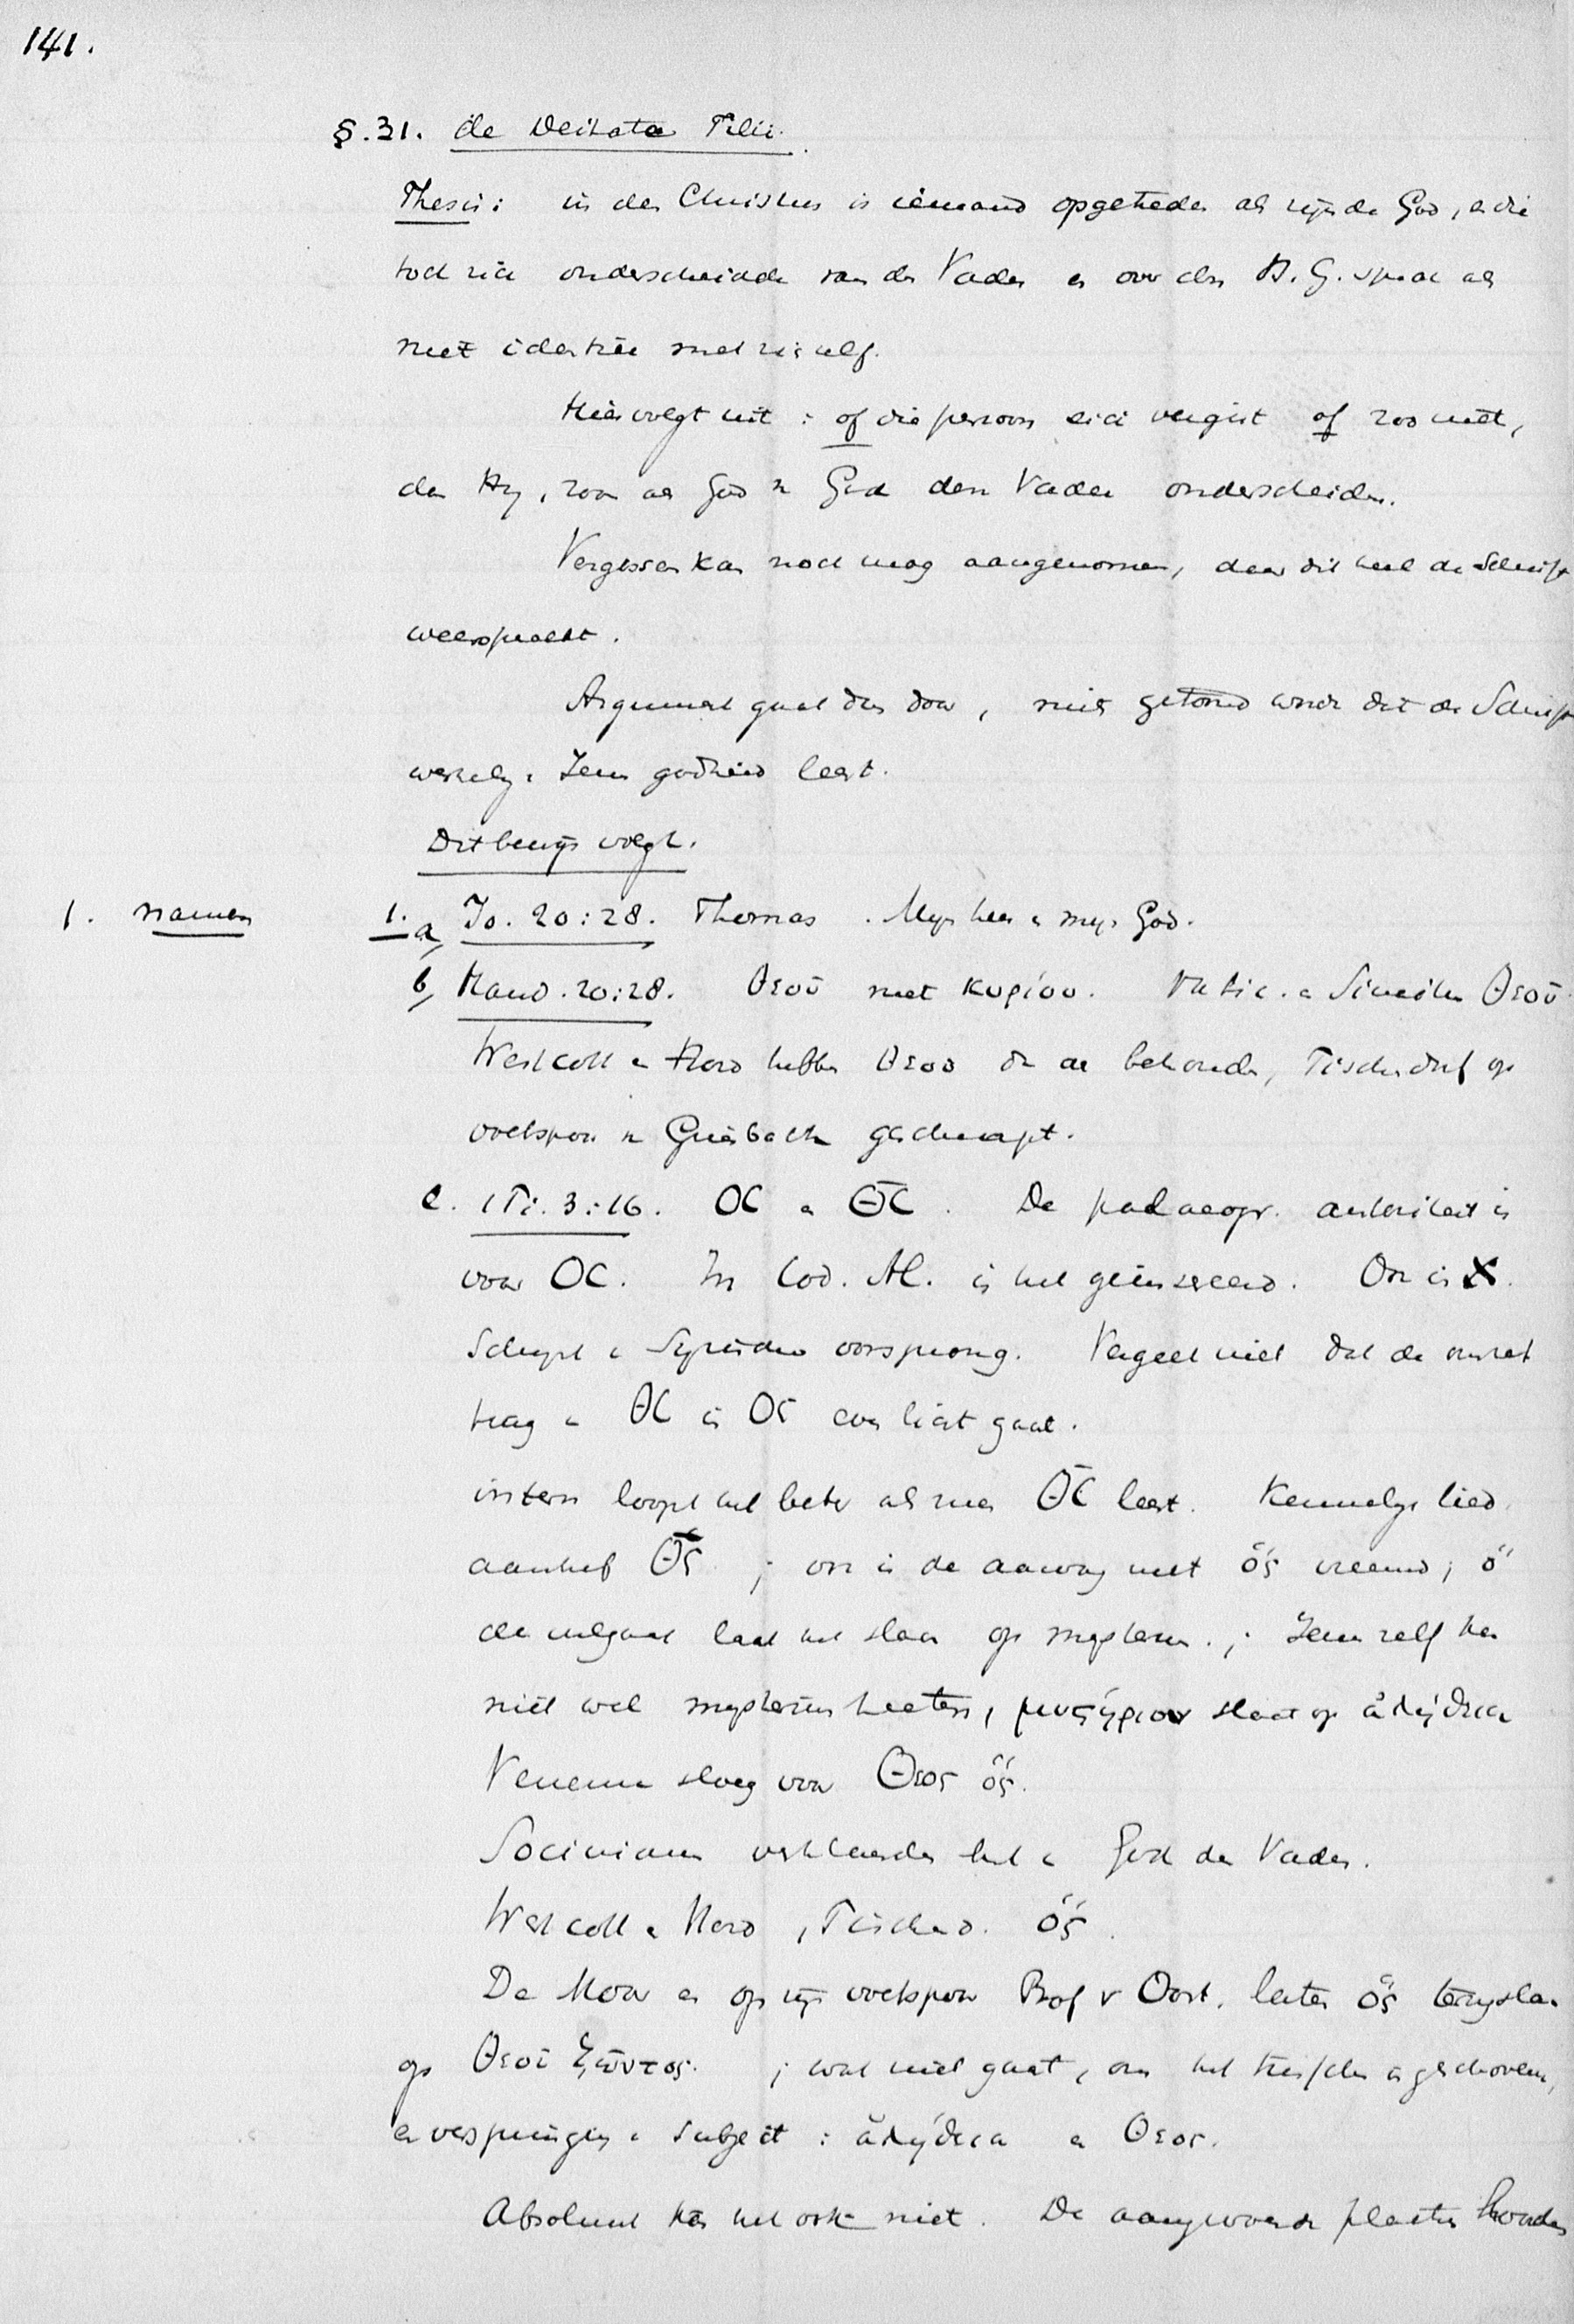 141.
§.31. de Deitate Filii.
Thesis: in den Christus is iemand opgetreden als zijnde God, en die
toch zich onderscheidde van den Vader en over den H.G. sprak als
niet identiek met zichzelf.
Hieruit volgt uit: of die persoon zich vergist of zoo niet,
dan Hij, zoon als God v God den Vader onderscheiden.
Vergissen kan noch mag aangenomen, daar dit heel de Schrift
weerspreekt.
Argument gaat dus door, mits getoond wordt dat de Schrift
werkelijk Jezus godheid leert.
Dit bewijs volgt.
1. namen 1. a, Jo. 20:28. Thomas. Mijn heer en mijn God.
b, Hand. 20:28. Θεοῦ niet κυρίου. Vatic. en Sinaiticus Θεοῦ
Westcott en Hord hebben Θεοῦ dan ook behouden, Tischendorf op
voetspoor v Griesbach geschrapt.
c. 1 Ti. 3:16. ΟC en ΘC. De palaeogr. autoriteit is
voor ΟC. In Cod. Al. is het geinsereerd. Ook is א.
Vergeet niet dat de omzet
ΘC in ΟC licht gaat.
intern loopt het beter als men ΘC leest. Kennelijk lied.
aanhef Θς; ook is de aanvang met ὅς vreemd; ὅ
de vulgaat laat het slaan op mysterium.; Jezus zelf kan
niet wel mysterium heeten, μυστήριον slaat op ἀλήθεια
Venema sloeg voor Θεος ὅς.
Socinianen verklaarden het v God den Vader.
Westcott en Hord, Tischend. ὅς.
De Moor en op zijn voetspoor Prof v Oost. laten ὅς terugslaan
op Θεοῦ ζῶντος.; wat niet gaat, om het tusschen in geschovene,
en verspringen v subject: ἀλήθεια en Θεος.
Absoluut kan het ook niet. De aangevoerde plaatsen houden